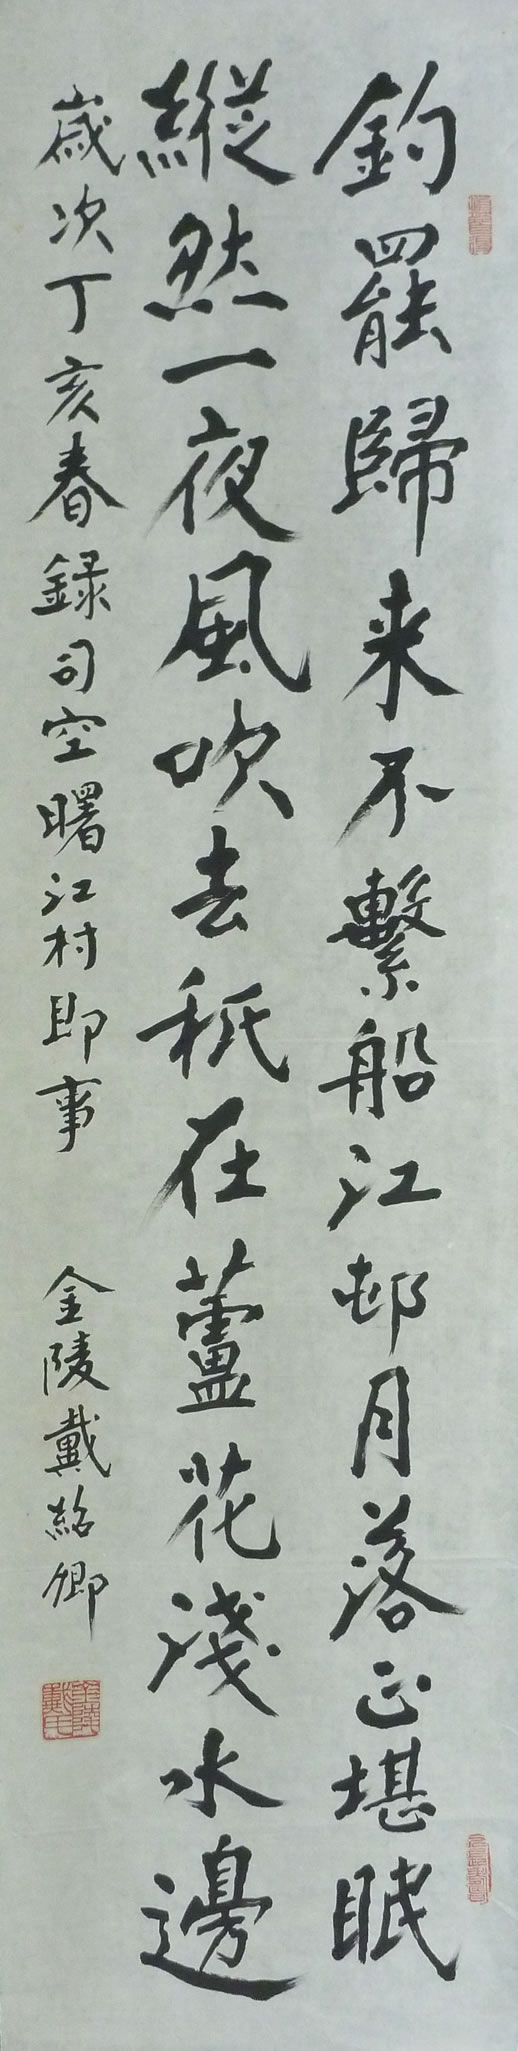 釣罷歸来不繫船江邨月落正堪眠
縱然一夜風吹去秖在蘆花淺水邊
歲次丁亥春録司空曙江村即事
金陵戴紹卿